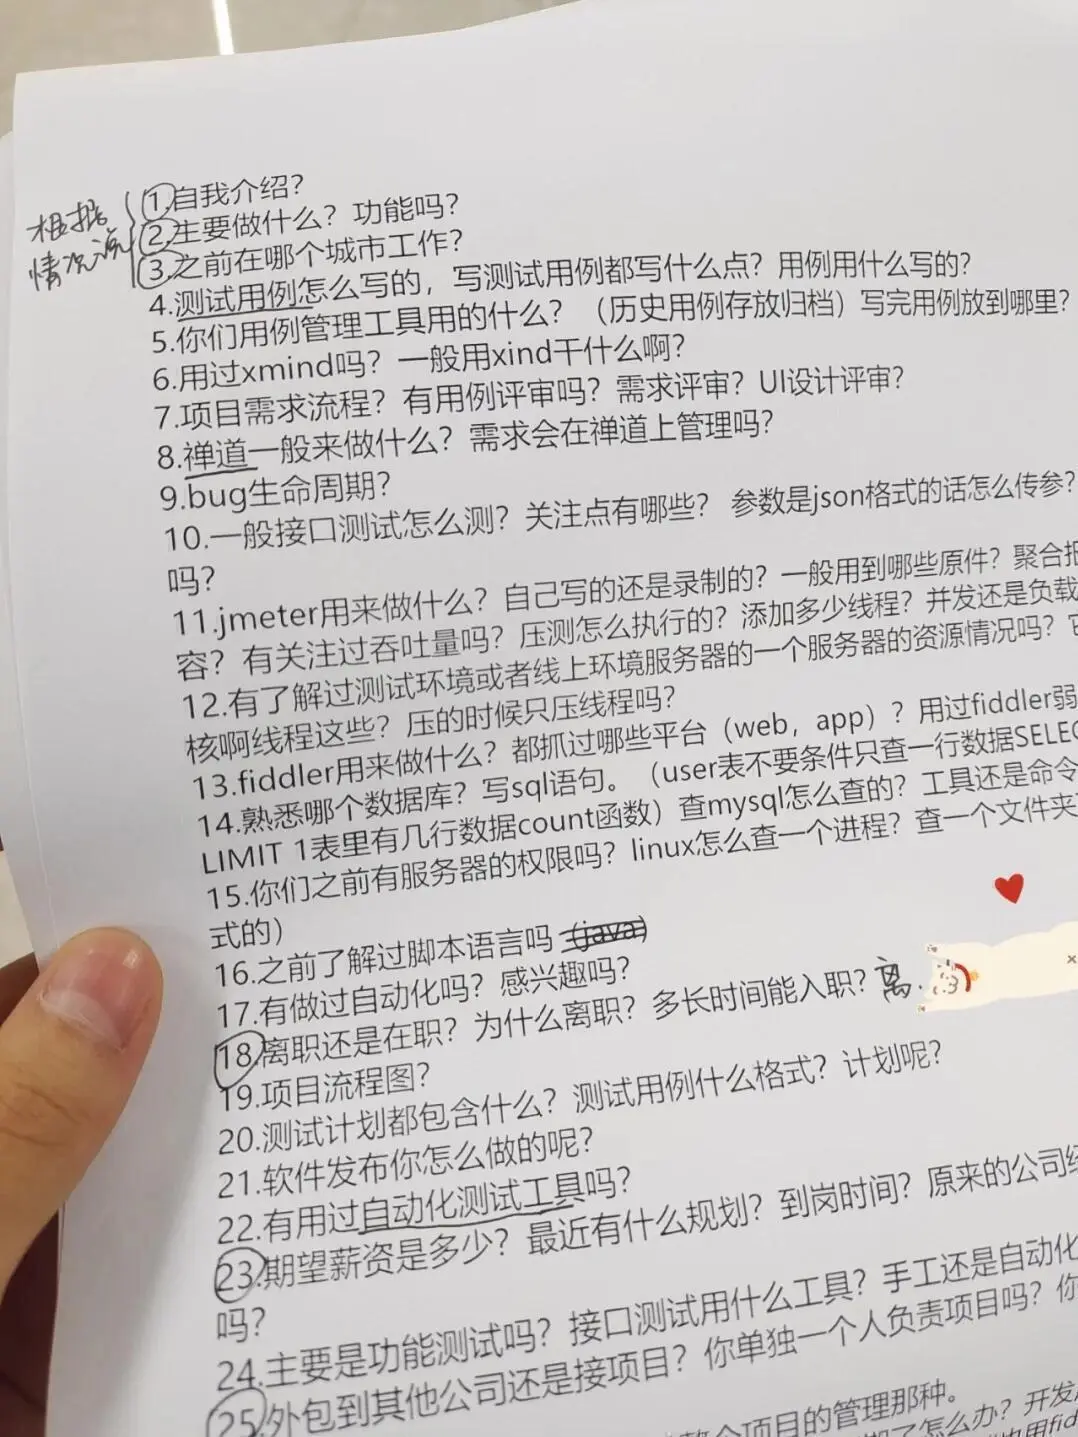 根据
情况说
1.自我介绍？
2.主要做什么？功能吗？
3.之前在哪个城市工作？
4.测试用例怎么写的，写测试用例都写什么点？用例用什么写的？
5.你们用例管理工具用的什么？（历史用例存放归档）写完用例放到哪里？
6.用过xmind吗？一般用xind干什么啊？
7.项目需求流程？有用例评审吗？需求评审？UI设计评审？
8.禅道一般来做什么？需求会在禅道上管理吗？
9.bug生命周期？
10.一般接口测试怎么测？关注点有哪些？ 参数是json格式的话怎么传参？
吗？
11.jmeter用来做什么？自己写的还是录制的？一般用到哪些原件？聚合报
容？有关注过吞吐量吗？压测怎么执行的？添加多少线程？并发还是负载
12.有了解过测试环境或者线上环境服务器的一个服务器的资源情况吗？
核啊线程这些？压的时候只压线程吗？
13.fiddler用来做什么？都抓过哪些平台（web，app）？用过fiddler弱
14.熟悉哪个数据库？写sql语句。（user表不要条件只查一行数据SELEC
LIMIT 1表里有几行数据count函数）查mysql怎么查的？工具还是命令
15.你们之前有服务器的权限吗？linux怎么查一个进程？查一个文件夹
式的）
16.之前了解过脚本语言吗（java）
17.有做过自动化吗？感兴趣吗？
18.离职还是在职？为什么离职？多长时间能入职？离.
19.项目流程图？
20.测试计划都包含什么？测试用例什么格式？计划呢？
21.软件发布你怎么做的呢？
22.有用过自动化测试工具吗？
23.期望薪资是多少？最近有什么规划？到岗时间？原来的公司经
吗？
24.主要是功能测试吗？接口测试用什么工具？手工还是自动化
25.外包到其他公司还是接项目？你单独一个人负责项目吗？你
个项目的管理那种。
了怎么办？开发
用fid